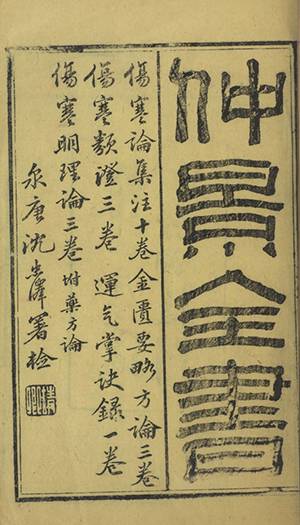 仲景全書
傷寒論集注十卷金匱要略方論三卷
傷寒類證三卷 運气掌訣錄一卷
傷寒明理論三卷附藥方論
泉唐沈署檢